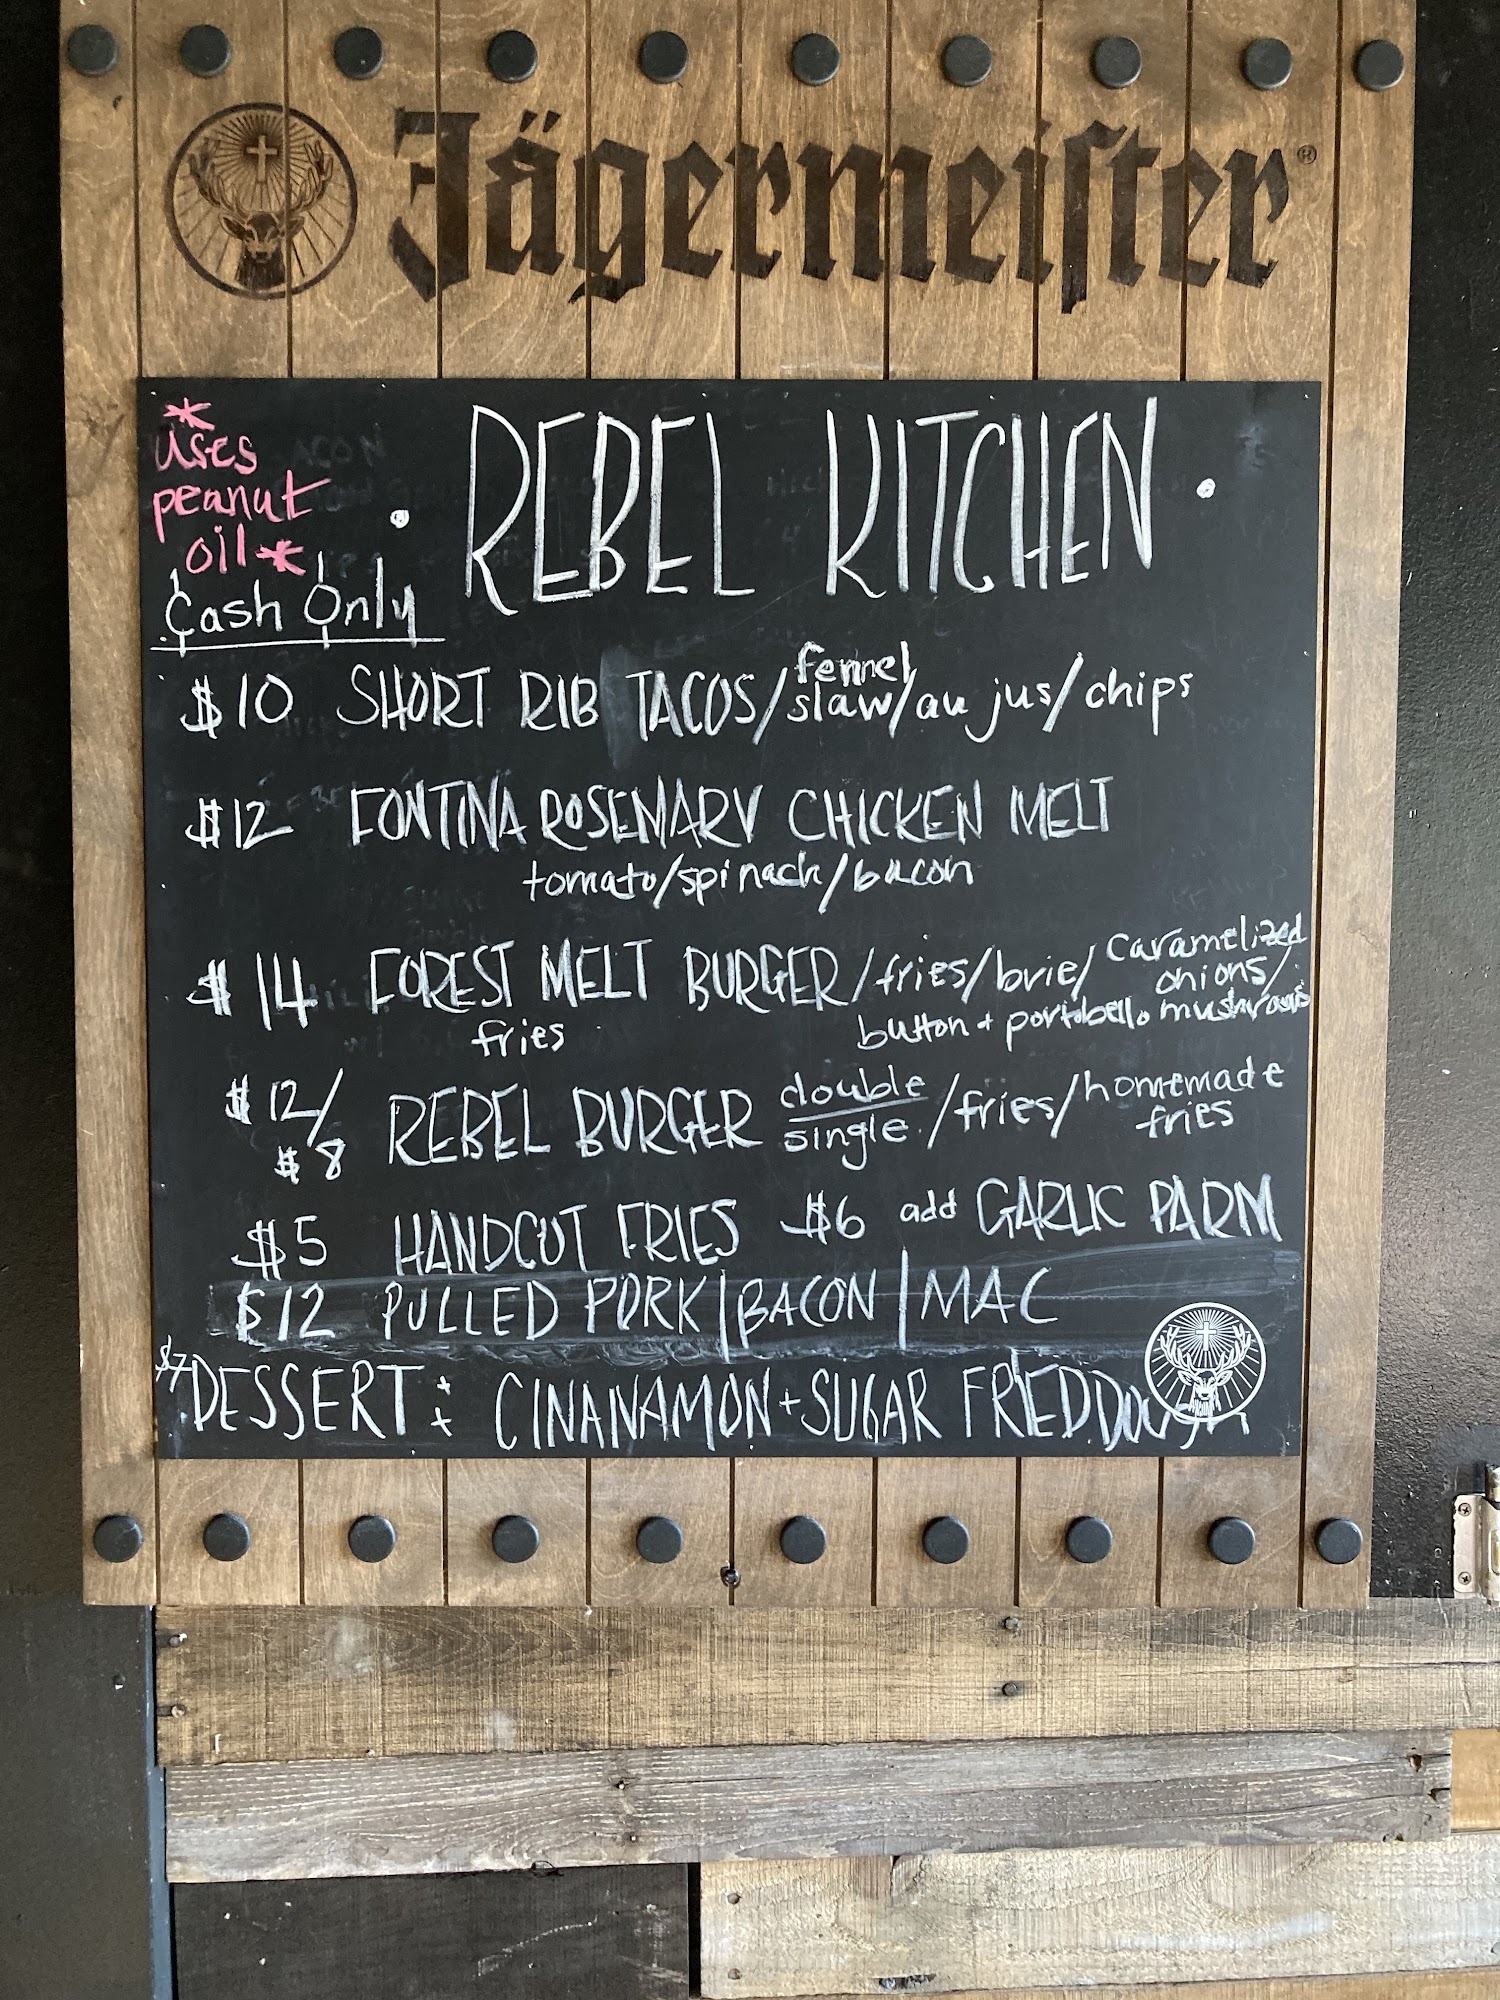 Jägermeister®
*
uses
peanut
oil*
Cash Only
• REBEL KITCHEN •
$10 SHORT RIB TACOS/fennel slaw/au jus/chips
$12 FONTINA ROSEMARY CHICKEN MELT
tomato/spinach/bacon
$14 FOREST MELT BURGER/fries/brie/caramelized onions/
fries button + portobello mushrooms
$12/ REBEL BURGER double /fries/homemade
$8 single fries
$5 HANDCUT FRIES $6 add GARLIC PARM
$12 PULLED PORK|BACON|MAC
$7 DESSERT: CINANAMON+SUGAR FRIED DOUGH